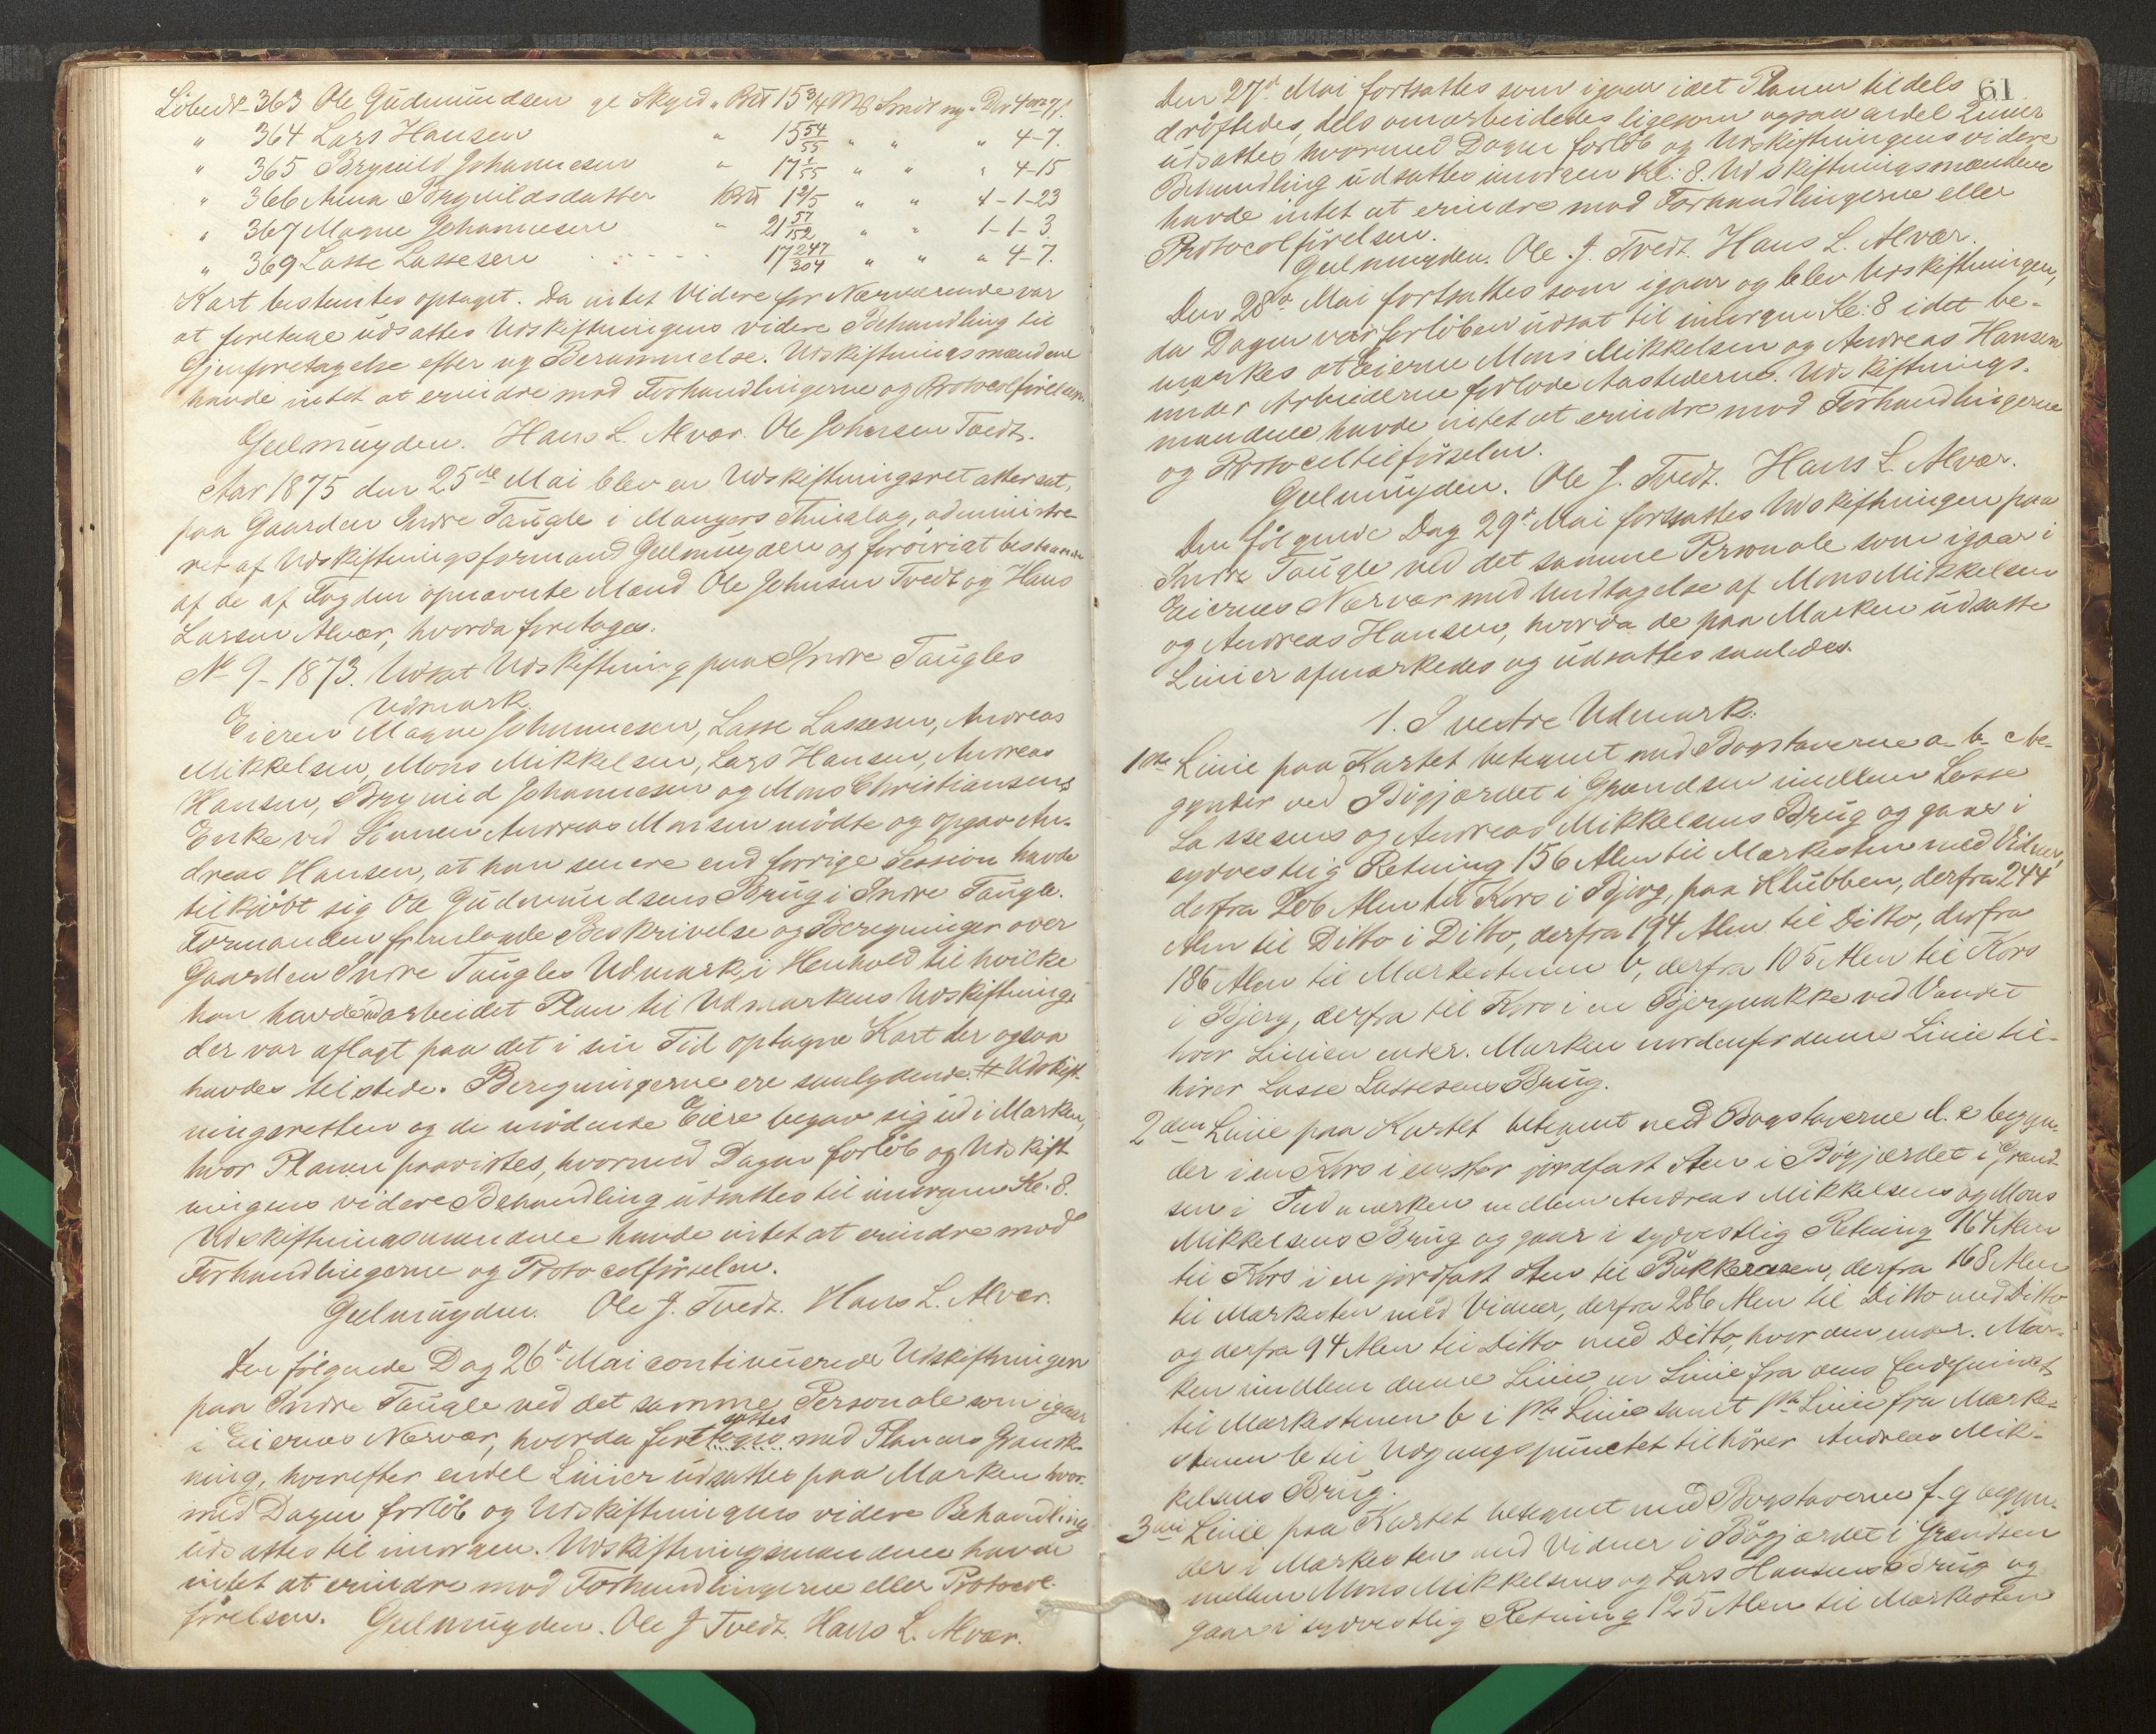 Löbenr 363 Ole Gudmundsen gl Skyld " Bpd 15 3/4 Mk Smör ny " Dlr 4 ort 7 s.
" 364 Lars Hansen " 15 54/55 " " " 4-7.
" 365 Brynild Johannesen " 17 1/55 " " " 4-15
" 366 Anna Brynildsdatter Bpd 1 2/5 " " 4-1-23
" 367 Magne Johannesen " 21 57/152 " " 1-1-3
" 369 Lasse Lassesen . . . . . 17 247/304 " " " 4-7.
Kart bestemtes optaget. Da intet Videre for Nærværende var
at foretage udsattes Udskiftningens videre Behandling til
Gjenforetagelse efter ny Berammelse. Udskiftningsmændene
havde intet at erindre mod Forhandlingerne og Protocolförelsen.
Geelmuyden. Hans L. Alvær. Ole Johnsen Tvedt.
Aar 1875 den 25de Mai blev en Udskiftningsret atter sat,
paa Gaarden Indre Taugle i Mangers Thinglag, administre-
ret af Udskiftningsformand Geelmuyden og forövrigt bestaaende
af de af Fogden opnævnte Mænd Ole Johnsen Tvedt og Hans
Larsen Alvær, hvorda foretoges:
No 9-1873. Udsat Udskiftning paa Indre Taugles
Udmark.
Eieren Magne Johannesen, Lasse Lassesen, Andreas
Mikkelsen, Mons Mikkelsen, Lars Hansen, Andreas
Hansen, Brynild Johannesen og Mons Christiansens
Enke ved Sönnen Andreas Monsen mödte og opgav An-
dreas Hansen, at han senere end forrige Session havde
tilkjöbt sig Ole Gudmundsens Brug i Indre Taugle.
Formanden fremlagde Beskrivelse og Beregninger over
Gaarden Indre Taugles Udmark, i Henhold til hvilke
han havde udarbeidet Plan til Udmarkens Udskiftning,
der var aflagt paa det i sin Tid optagne Kart der ogsaa
havdes tilstede. Beregningerne ere saalydende: # Udskift-
ningsretten og de mödende Eiere begav sig ud i Marken,
hvor Planen paavistes, hvormed Dagen forlöb og Udskift-
ningens videre Behandling udsattes til imorgen Kl. 8.
Udskiftningsmændene havde intet at erindre mod
Forhandlingerne og Protocolförselen.
Geelmuyden. Ole J. Tvedt. Hans L. Alvær.
Den fölgende Dag 26d Mai continuerede Udskiftningen
paa Indre Taugle ved det samme Personale som igaar
i Eiernes Nærvær, hvorda foretoges sattes med Planens Gransk-
ning, hvorefter endel Linier udsattes paa Marken hvor-
med Dagen forlöb og Udskiftningens videre Behandling
udsattes til imorgen. Udskiftningsmændene havde
intet at erindre mod Forhandlingerne eller Protocol-
förelsen. Geelmuyden. Ole J Tvedt. Hans L. Alvær.
61
Den 27d. Mai fortsattes som igaar idet Planen tildels
dröftedes, dels omarbeidedes ligesom ogsaa endel Linier
udsattes hvormed Dagen forlöb og Udskiftningens videre
Behandling udsattes imorgen Kl: 8. Udskiftningsmændene
havde intet at erindre mod Forhandlingerne eller
Protocolförelsen.
Geelmuyden. Ole J. Tvedt. Hans L. Alvær.
Den 28d Mai fortsattes som igaar og blev Udskiftningen,
da Dagen var forlöben udsat til imorgen Kl: 8 idet be-
mærkes at Eierne Mons Mikkelsen og Andreas Hansen
under Arbeiderne forlode Aastederne. Udskiftnings-
mændene havde intet at erindre mod Forhandlingerne
og Protocoltilförselen.
Geelmuyden. Ole J. Tvedt. Hans L. Alvær.
Den fölgende Dag 29d Mai fortsattes Udskiftningen paa
Indre Taugle ved det samme Personale som igaar i
Eiernes Nærvær med Undtagelse af Mons Mikkelsen
og Andreas Hansen, hvorda de paa Marken udsatte
Linier afmærkedes og udsattes saaledes:
1. I vestre Udmark:
1ste Linie paa Kartet betegnet med Bogstaverne a-b-c be-
gynder ved Bögjærdet i Grændsen mellem Lasse
Lassesens og Andreas Mikkelsens Brug og gaar i
sydvestlig Retning 156 Alen til Mærkesten med Vidner,
derfra 206 Alen til Kors i Bjerg, paa Klubben, derfra 244
Alen til Ditto i Ditto, derfra 194 Alen til Ditto, derfra
186 Alen til Mærkestenen b, derfra 105 Alen til Kors
i Bjerg, derfra til Kors i en Bjergnakke ved Vandet
hvor Linien ender. Marken nordenfor denne Linie til-
hörer Lasse Lassesens Brug.
2den Linie paa Kartet betegnet med Bogstaverne d. e begyn-
der i en Kors i en stor jordfast Sten i Bögjærdet i Grænd-
sen i Indmarken mellem Andreas Mikkelsens og Mons
Mikkelsens Brug og gaar i sydvestlig Retning 164 Alen
til Kors i en jordfast Sten til Bukkeraasen, derfra 168 Alen
til Mærkesten med Vidner, derfra 286 Alen til Ditto med Ditto
og derfra 94 Alen til Ditto med Ditto, hvor den ender. Mar-
ken imellem denne Linie, en Linie fra dens Endepunkt
til Mærkestenen b i 1ste Linie samt 1ste Linie fra Mærke-
stenen b til Udgangspunctet tilhörer Andreas Mik-
kelsens Brug.
3die Linie paa Kartet betegnet med Bogstaverne f-g begyn-
der i Mærkesten med Vidner i Bögjærdet i Grændsen
mellem Mons Mikkelsens og Lars Hansens Brug og
gaar i sydvestlig Retning 125 Alen til Mærkesten